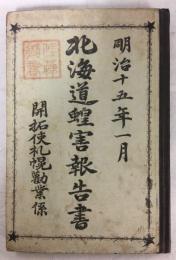 明治十五年一月
北海道蝗害報告書
開拓使札幌勧業係